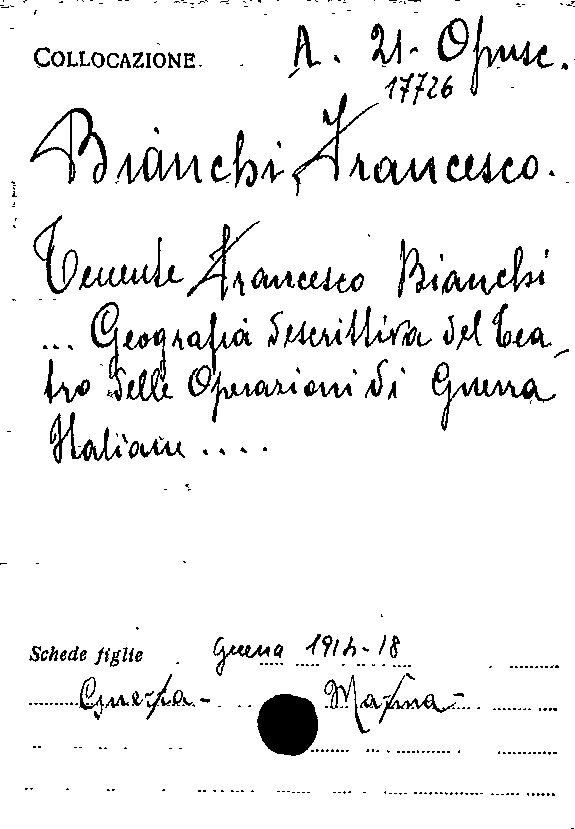 COLLOCAZIONE A. 21. Opusc.
17726
Bianchi, Francesco.
Tenente Francesco Bianchi
... Geografia descrittiva del Tea_
tro delle Operazioni di Guerra
Italiane ....
Schede figlie Guerra 1914-18
Guerra - Marina -